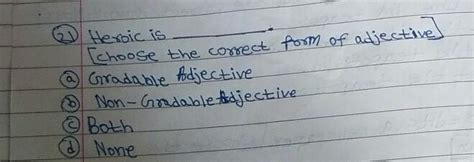 (2) Heroic is ___________.
[choose the correct form of adjective]
(a) Gradable Adjective
(b) Non-Gradable Adjective
(c) Both
(d) None